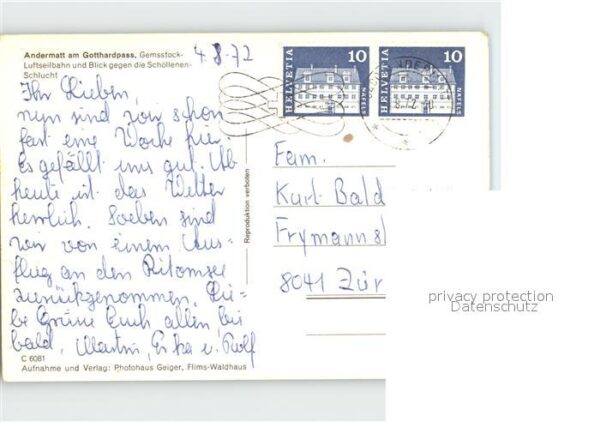 Andermatt am Gotthardpass, Gemsstock-
Luftseilbahn und Blick gegen die Schöllenen-
Schlucht
4.8.72
Ihr Lieben,
nun sind wir schon
fast eine Woche hier.
Es gefällt uns gut. Ab
heute ist das Wetter
herrlich. Soeben sind
wir von einem Aus-
flug an den Ritomsee
zurückgenommen. Lie-
be Grüsse Euch allen bis
bald, Martin, Erika u. Rolf
C 6081
Aufnahme und Verlag: Photohaus Geiger, Flims-Waldhaus
Reproduktion verboten
HELVETIA 10 NÄFELS
HELVETIA 10 NÄFELS
Fam.
Kurt Bald
Frymann
8041 Zür
privacy protection
Datenschutz